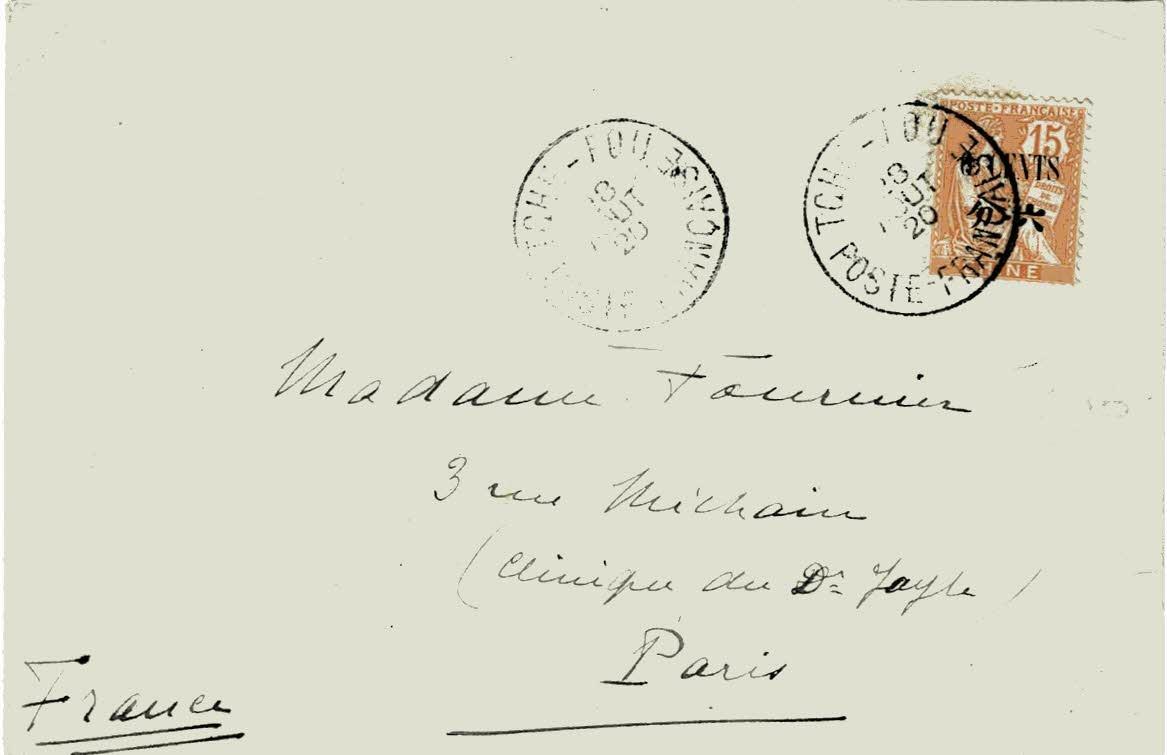 TCHE-FOU
POSTE FRANÇAISE
18
AOUT
20
TCHE-FOU
POSTE-FRANÇAISE
18
AOUT
20
POSTE·FRANÇAISE
15
6 CENTS
DROITS
DE
L'HOMME
六
CHINE
Madame Fournier
3 rue Méchain
(Clinique du Dr Jayle)
Paris
France